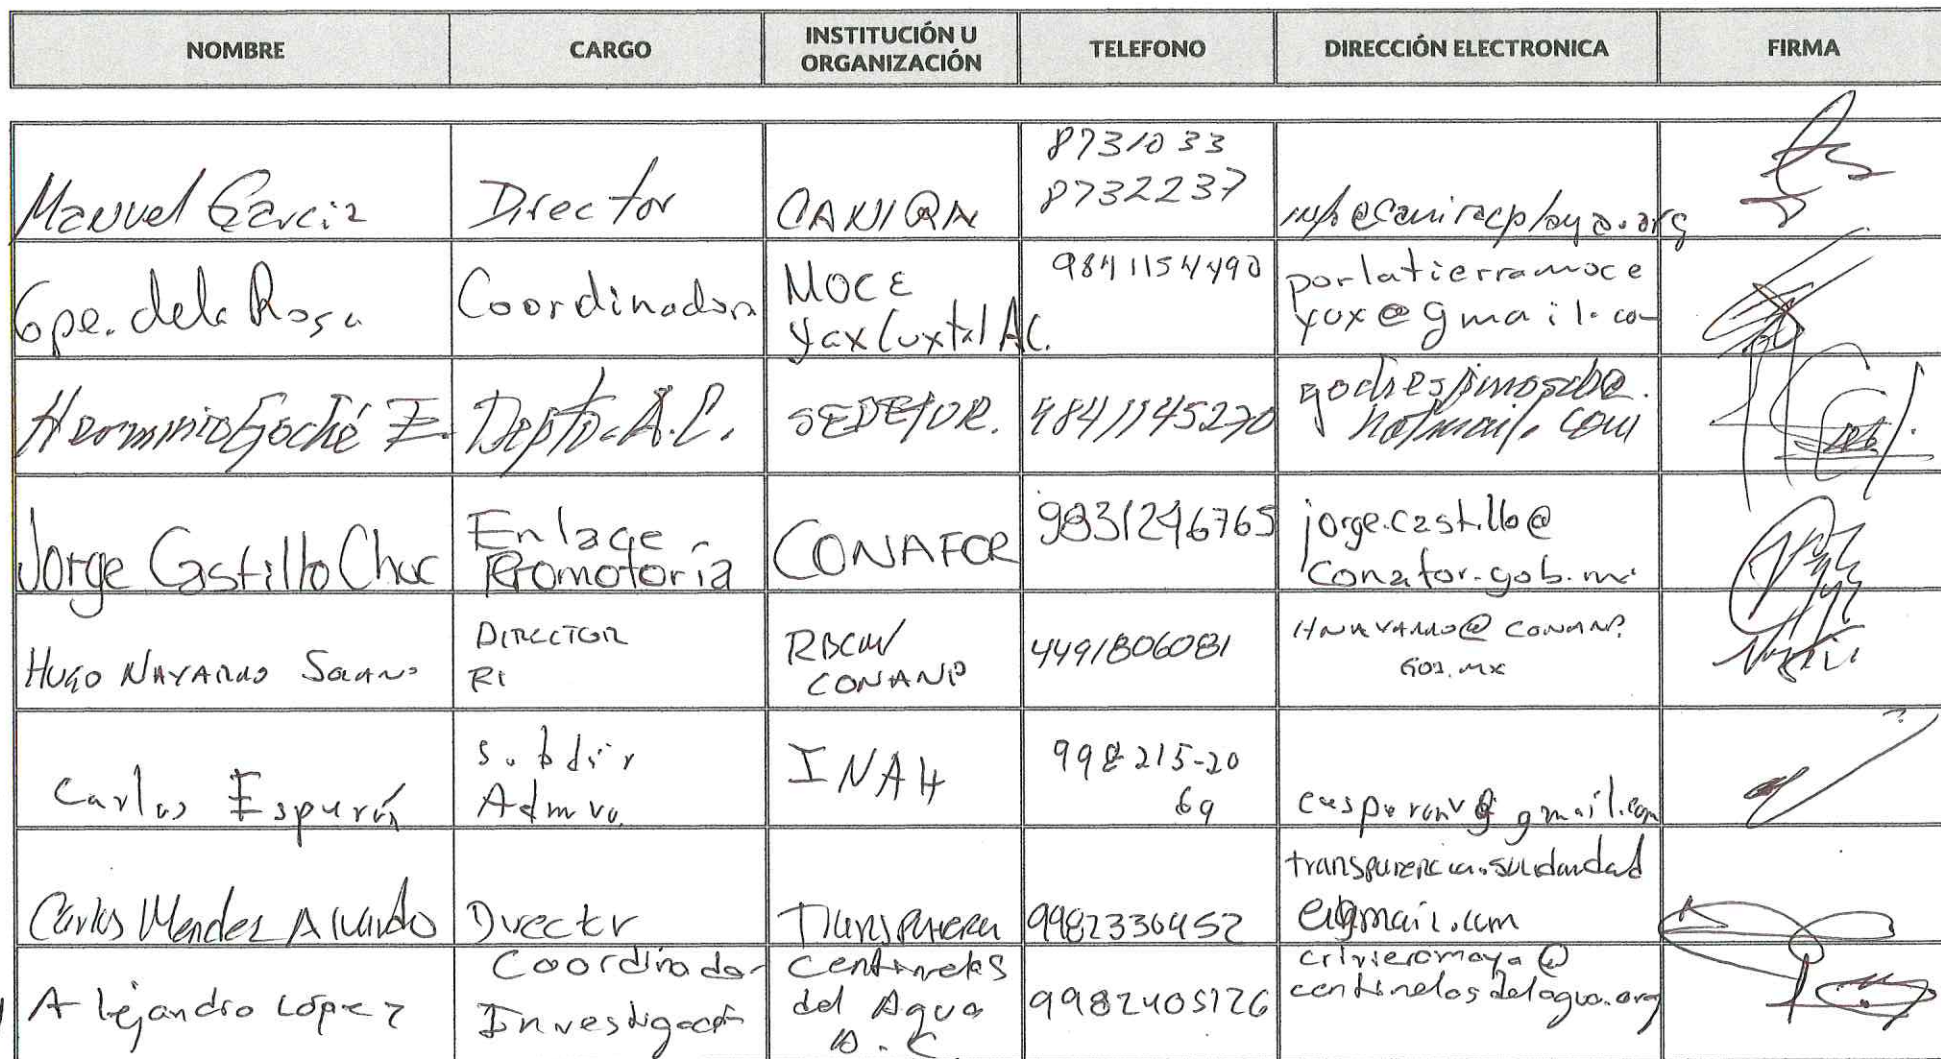 NOMBRE CARGO INSTITUCIÓN U ORGANIZACIÓN TELEFONO DIRECCIÓN ELECTRONICA FIRMA
8731033
8732237
Manuel Garcia Director CANIRA
9841154490
Gpe. de la Rosa Coordinadora MOCE
Yax Cuxtal AC.
porlatierramoce
yax@gmail.com
Herminio Goché E. Depto. A.C. SEDETUR. 9841145270
hotmail.com
Jorge Castillo Chuc Enlace
Promotoría
CONAFOR 9831246765 jorge.castillo@
conafor.gob.mx
HUGO NAVARRO SOLANO DIRECTOR
RBCM/
CONANP
4491806081 HNAVARRO@CONANP.
GOB.MX
Carlos Esperón Subdir
Admvo.
INAH 998 215-20
69
cesperonv@gmail.com
Carlos Mendez Alvarado Director Transparencia 9982336452 transparencia.solidaridad
@gmail.com
Alejandro López Coordinador
Investigación
Centinelas
del Agua
A.C.
9982405126
centinelasdelagua.org